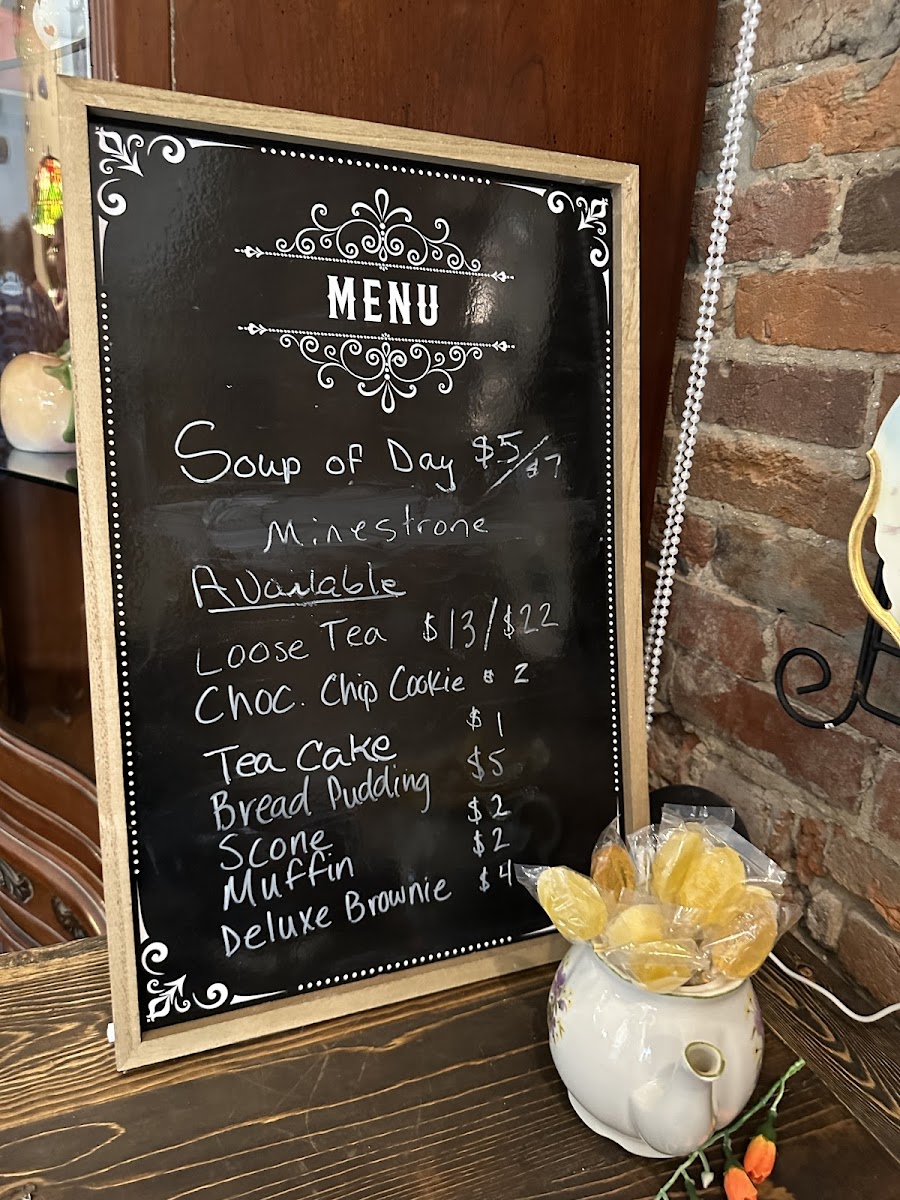 MENU
Soup of Day $5/$7
Minestrone
Available
Loose Tea $13/$22
Choc. Chip Cookie $2
Tea Cake $1
Bread Pudding $5
Scone $2
Muffin $2
Deluxe Brownie $4